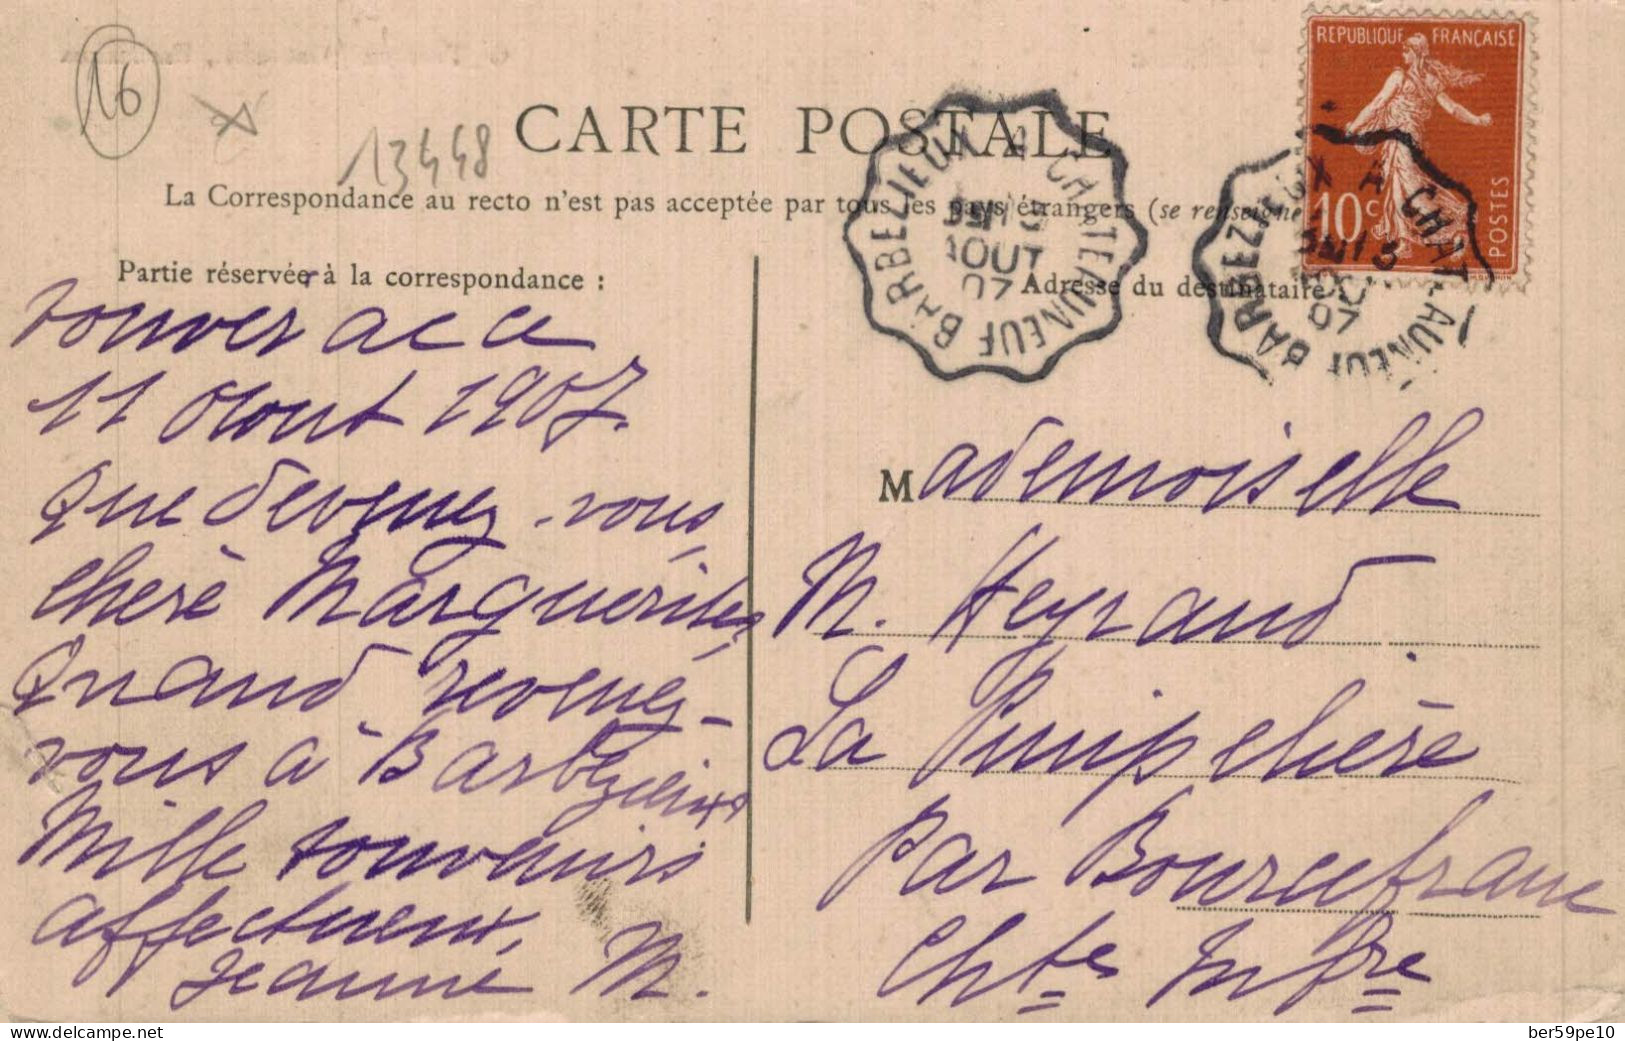 16
13448
CARTE POSTALE
La Correspondance au recto n'est pas acceptée par tous les pays étrangers (se renseigne
Partie réservée à la correspondance :
Adresse du destinataire
REPUBLIQUE FRANÇAISE
10c
POSTES
BARBEZIEUX A CHATEAUNEUF
13
AOUT
07
BARBEZIEUX A CHATEAUNEUF
13
07
11 Aout 1907.
Que devenez-vous,
chere Marguerite,
Quand revenez-
vous à Barbezieux
Mille souvenirs
affectueux,
Jeanne M.
Mademoiselle
M. Heyraud
La Puipchère
Par Bourcefranc
Chtes Infre
www.delcampe.net
ber59pe10